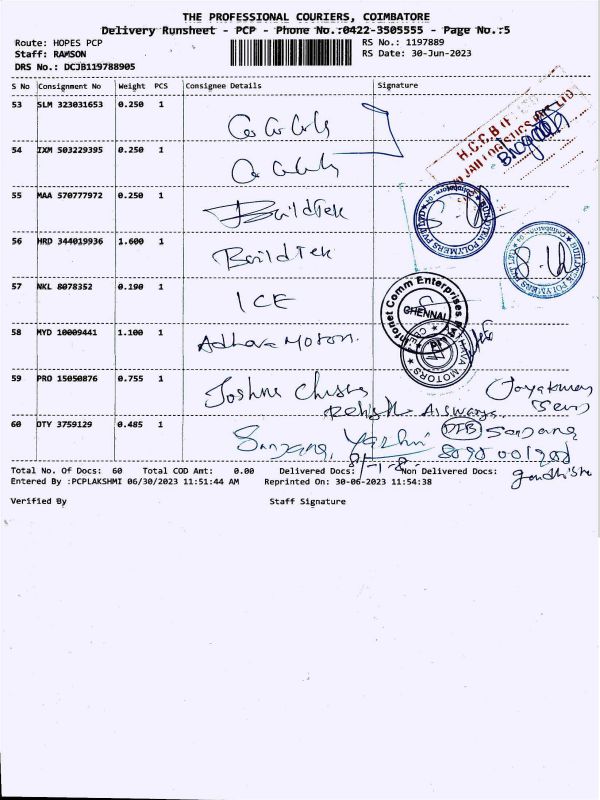 THE PROFESSIONAL COURIERS, COIMBATORE
Delivery Runsheet - PCP - Phone No.:0422-3505555 - Page No.:5
Route: HOPES PCP
RS No.: 1197889
Staff: RAMSON
RS Date: 30-Jun-2023
DRS No.: DCJB119788905
S No Consignment No Weight PCS Consignee Details Signature
53 SLM 323031653 0.250 1
54 IXM 503229395 0.250 1
55 MAA 570777972 0.250 1 BuildTek
56 HRD 344019936 1.600 1 BuildTek
57 NKL 8078352 0.190 1 ICE
58 MYD 10009441 1.100 1 Adhava Motors.
59 PRO 15050876 0.755 1 Joshna
60 DTY 3759129 0.485 1
H.C.C.B
Intronet Comm Enterprises
CHENNAI
MOTORS
Total No. Of Docs: 60 Total COD Amt: 0.00 Delivered Docs: Non Delivered Docs:
Entered By :PCPLAKSHMI 06/30/2023 11:51:44 AM Reprinted On: 30-06-2023 11:54:38
Verified By Staff Signature